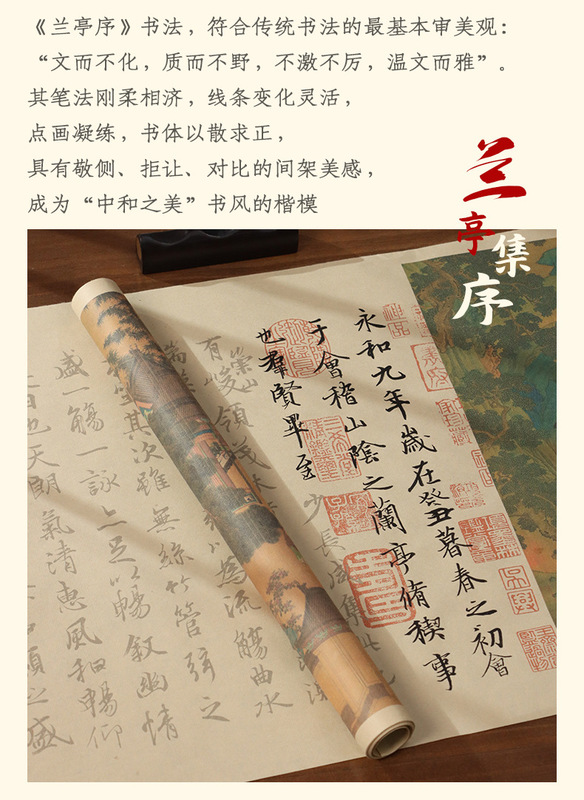 《兰亭序》书法，符合传统书法的最基本审美观：
“文而不化，质而不野，不激不厉，温文而雅”。
其笔法刚柔相济，线条变化灵活，
点画凝练，书体以散求正，
具有敬侧、拒让、对比的间架美感，
成为“中和之美”书风的楷模
兰亭集序
永和九年歲在癸丑暮春之初會
于會稽山陰之蘭亭脩稧事
也羣賢畢至少長咸集此
有崇山峻領茂
為流觴曲水
其次雖無絲竹管弦之
盛一觴一詠亦足以暢敘幽情
日也天朗氣清惠風和暢仰
類之盛